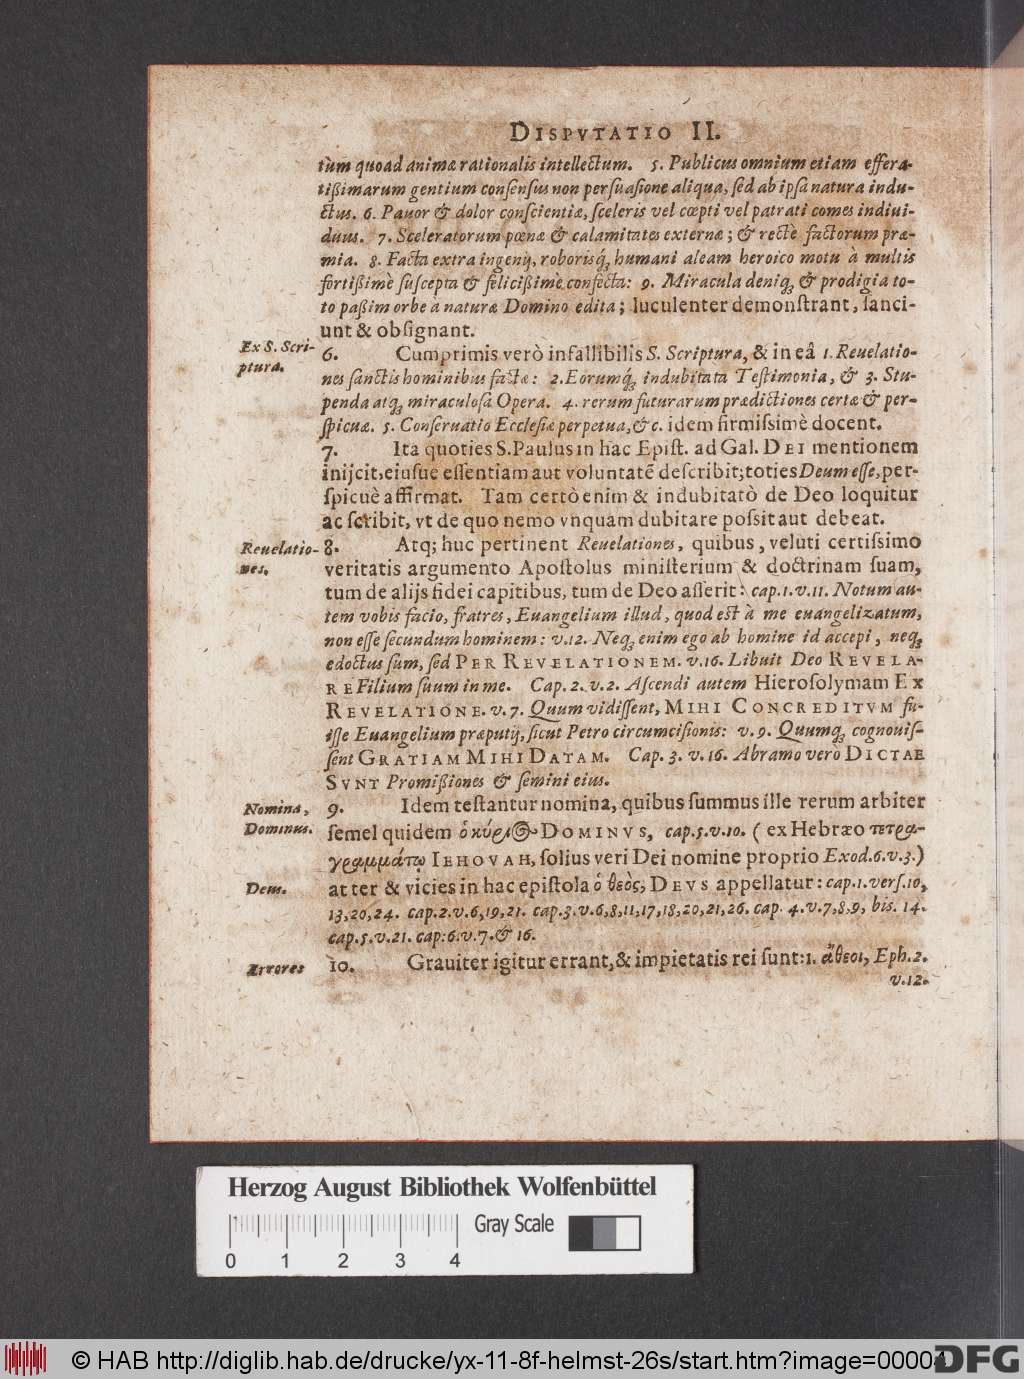 DISPVTATIO II.
tùm quoad animæ rationalis intellectum. 5. Publicus omnium etiam effera-
tißimarum gentium consensus non persuasione aliqua, sed ab ipsa natura indu-
ctus. 6. Pavor & dolor conscientiæ, sceleris vel cœpti vel patrati comes indivi-
duus. 7. Sceleratorum pœnæ & calamitates externæ; & rectè factorum præ-
mia. 8. Facta extra ingenij, roborisq́; humani aleam heroico motu à multis
fortißimè suscepta & felicißimè confecta: 9. Miracula deniq; & prodigia to-
to paßim orbe à naturæ Domino edita; luculenter demonstrant, sanci-
unt & obsignant.
Ex S. Scri-
ptura.
6. Cumprimis verò infallibilis S. Scriptura, & in eâ 1. Reuelatio-
nes sanctis hominibus factæ: 2. Eorumq́; indubitata Testimonia, & 3. Stu-
penda atq; miraculosa Opera. 4. rerum futurarum prædictiones certæ & per-
spicuæ. 5. Conseruatio Ecclesiæ perpetua, &c. idem firmissimè docent.
7. Ita quoties S. Paulus in hac Epist. ad Gal. DEI mentionem
inijcit, eiusue essentiam aut voluntatē describit; toties Deum esse, per-
spicuè affirmat. Tam certò enim & indubitatò de Deo loquitur
ac scribit, vt de quo nemo vnquam dubitare possit aut debeat.
Reuelatio-
nes.
8. Atq; huc pertinent Reuelationes, quibus, veluti certissimo
veritatis argumento Apostolus ministerium & doctrinam suam,
tum de alijs fidei capitibus, tum de Deo asserit: cap. 1. v. 11. Notum au-
tem vobis facio, fratres, Euangelium illud, quod est à me euangelizatum,
non esse secundum hominem: v. 12. Neq; enim ego ab homine id accepi, neq;
edoctus sum, sed PER REVELATIONEM. v. 16. Libuit Deo REVELA-
RE Filium suum in me. Cap. 2. v. 2. Ascendi autem Hierosolymam EX
REVELATIONE. v. 7. Quum vidissent, MIHI CONCREDITVM fu-
isse Euangelium præputij, sicut Petro circumcisionis: v. 9. Quumq; cognouis-
sent GRATIAM MIHI DATAM. Cap. 3. v. 16. Abramo verò DICTAE
SVNT Promißiones & semini eius.
Nomina,
Dominus.
9. Idem testantur nomina, quibus summus ille rerum arbiter
semel quidem ὁ κύριος DOMINVS, cap. 5. v. 10. ( ex Hebræo τετρα-
γραμμάτῳ IEHOVAH, solius veri Dei nomine proprio Exod. 6. v. 3.)
Deus.
at ter & vicies in hac epistola ὁ θεὸς, DEVS appellatur: cap. 1. vers. 10,
13, 20, 24. cap. 2. v. 6, 19, 21. cap. 3. v. 6, 8, 11, 17, 18, 20, 21, 26. cap. 4. v. 7, 8, 9, bis. 14.
cap. 5. v. 21. cap: 6. v. 7. & 16.
Errores
10. Grauiter igitur errant, & impietatis rei sunt: 1. ἄθεοι, Eph. 2.
v. 12.
Herzog August Bibliothek Wolfenbüttel
Gray Scale
0 1 2 3 4
© HAB http://diglib.hab.de/drucke/yx-11-8f-helmst-26s/start.htm?image=00004
DFG